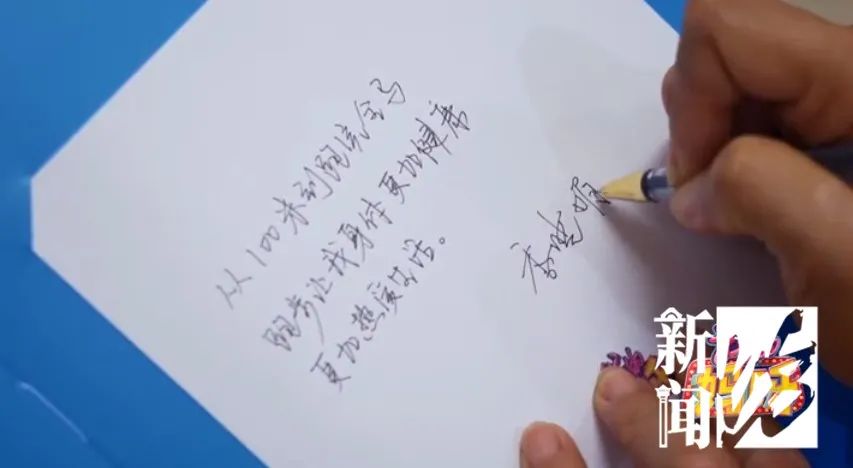 从100米到跑完全马
跑步让我身体更加健康
更加热爱生活。
新闻